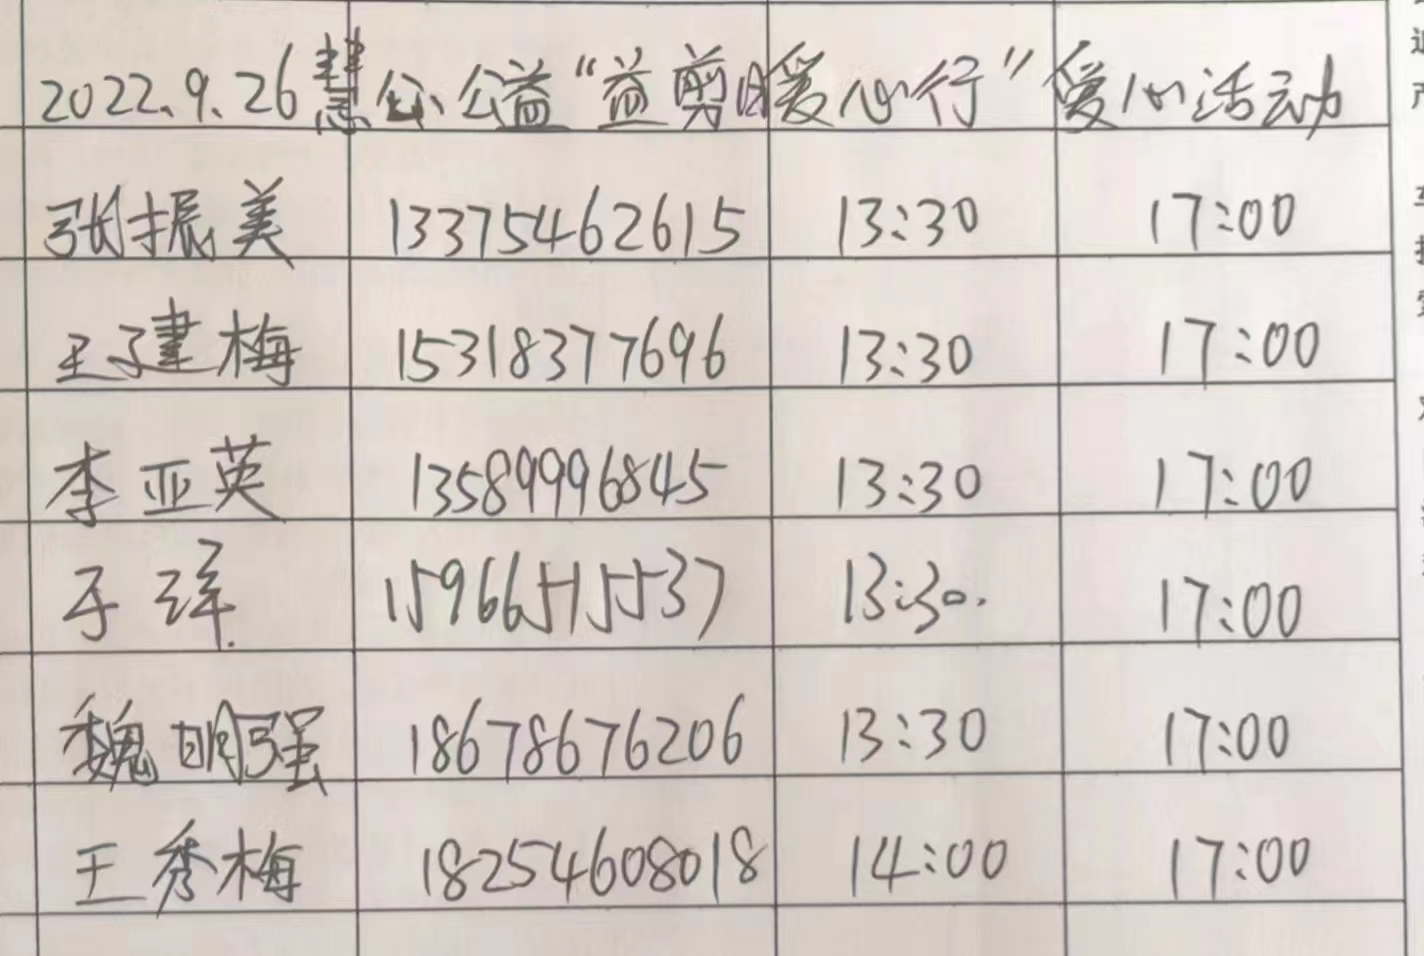 2022.9.26慧公公益“益剪暖心行”爱心活动
张振美 13375462615 13:30 17:00
王建梅 15318377696 13:30 17:00
李亚英 13589996845 13:30 17:00
于 13:30. 17:00
魏明强 18678676206 13:30 17:00
王秀梅 18254608018 14:00 17:00